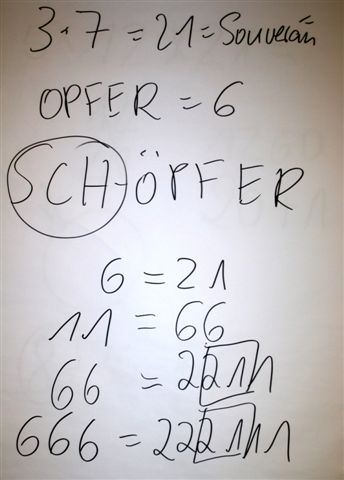 3·7 = 21 = Souverän
OPFER = 6
SCH-ÖPFER
6 = 21
11 = 66
66 = 2211
666 = 222111